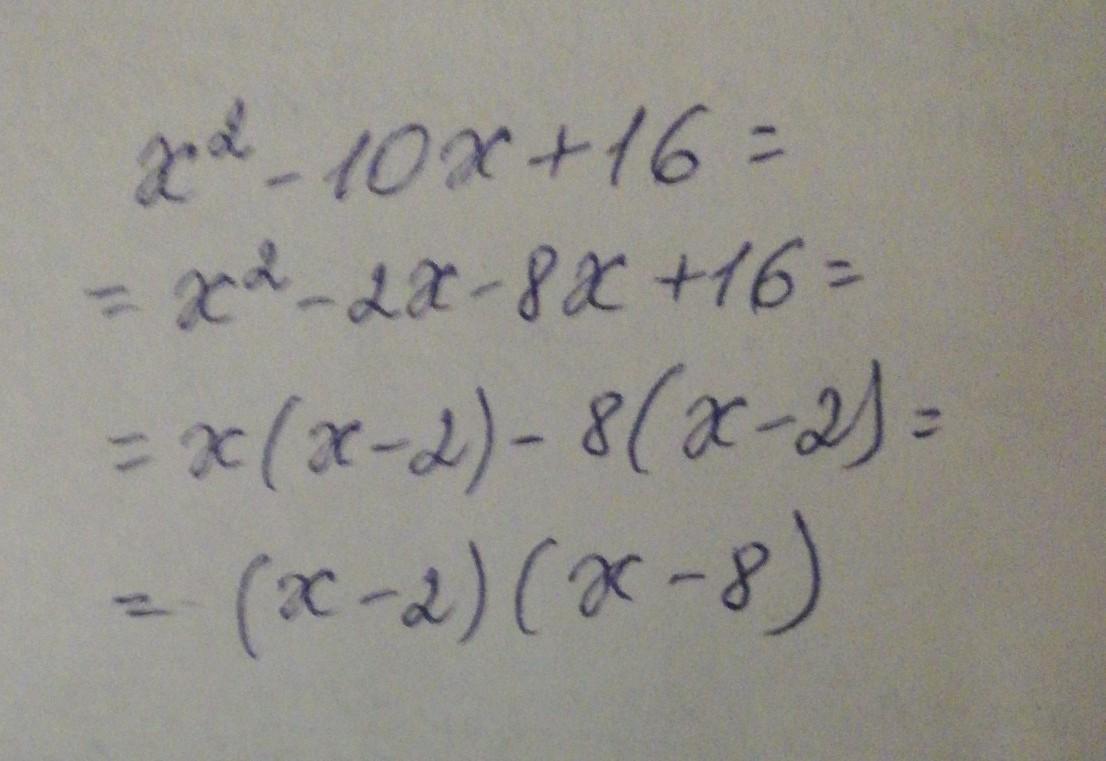 x² - 10x + 16 =
= x² - 2x - 8x + 16 =
= x(x - 2) - 8(x - 2) =
= (x - 2)(x - 8)